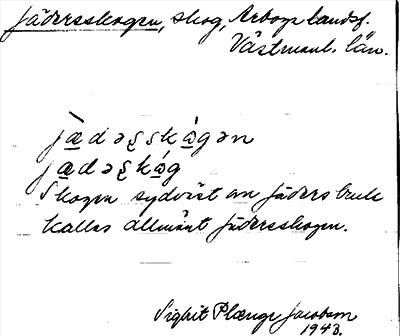 Jädersskogen, skog, Arboga landsf.
Västmanl. län.
jädəʂskógən
jädəʂkóg
Skogen sydväst om Jäders bruk
kallas allmänt Jädersskogen.
Sigbrit Plænge Jacobson
1948.